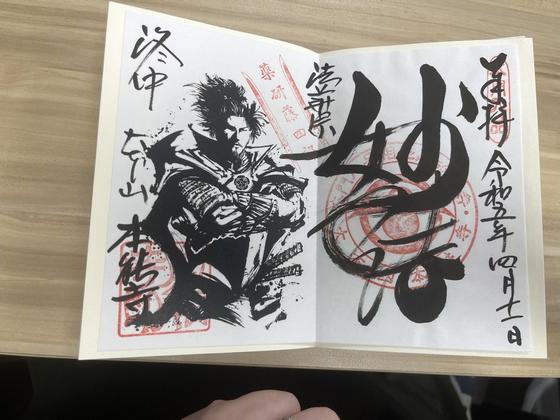 奉拝
令和五年四月十一日
妙
法華宗
薬研藤四郎
洛中
大本山
本能寺